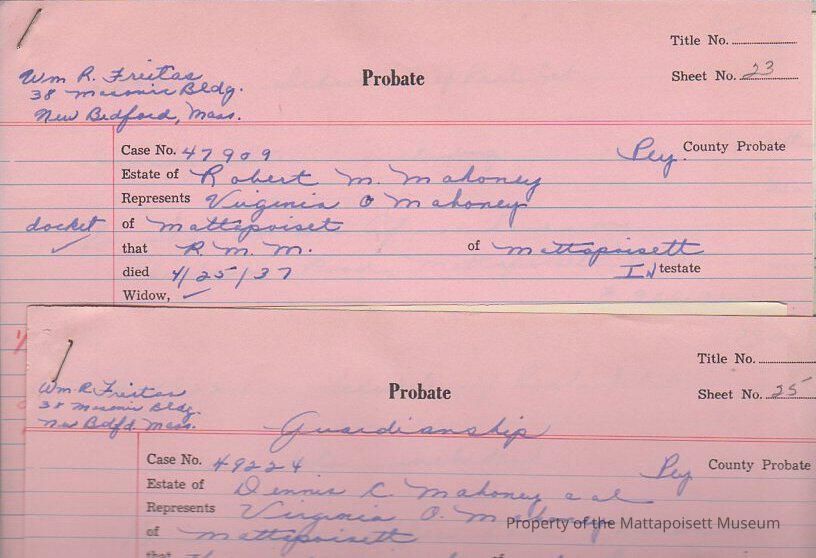 Title No.
Wm R. Freitas
Probate
Sheet No. 23
38 Masonic Bldg.
New Bedford, Mass.
Case No. 47909
Ply. County Probate
Estate of Robert M. Mahoney
Represents Virginia O Mahoney
docket
of Mattapoiset
that R. M. M. of Mattapoisett
died 4/25/37 INtestate
Widow,
Title No.
Wm R. Freitas
Probate
Sheet No. 25
38 Masonic Bldg.
New Bdfd. Mass.
Guardianship
Case No. 49224
Ply County Probate
Estate of Dennis C. Mahoney et al
Represents Virginia O. Mahoney
Property of the Mattapoisett Museum
of Mattapoisett
that